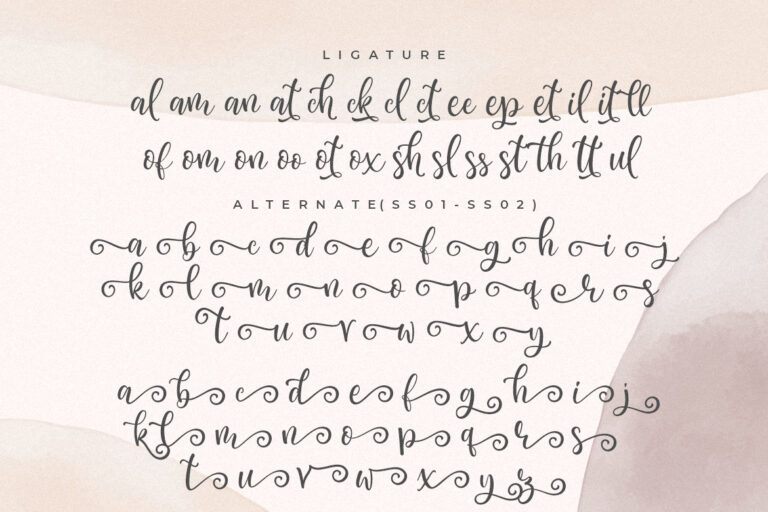 LIGATURE
al am an at ch ck cl ct ee ep et il it ll
of om on oo ot ox sh sl ss st th tt ul
ALTERNATE(SS01-SS02)
a b c d e f g h i j
k l m n o p q r s
t u v w x y
a b c d e f g h i j
k l m n o p q r s
t u v w x y z